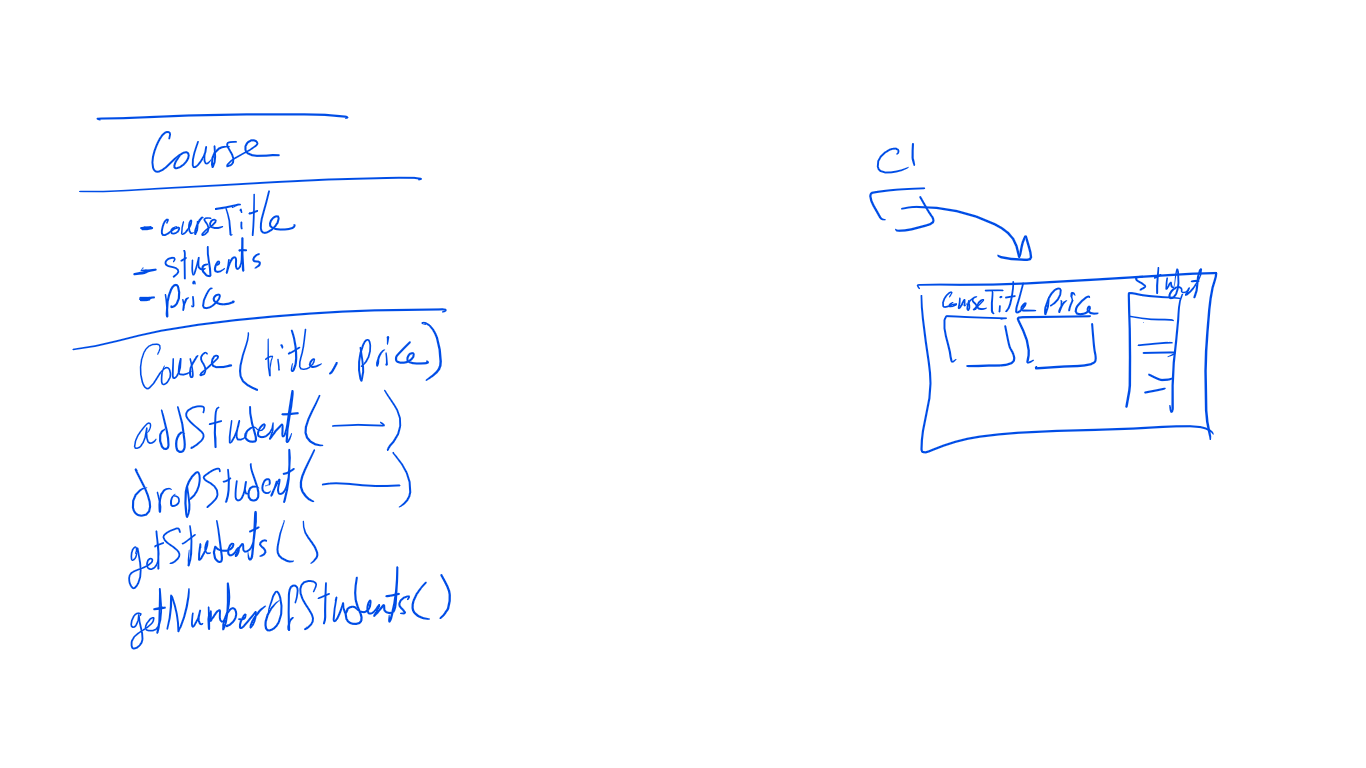 Course
- courseTitle
- students
- price
Course(title, price)
addStudent( — )
dropStudent( — )
getStudents()
getNumberOfStudents()
C1
courseTitle Price